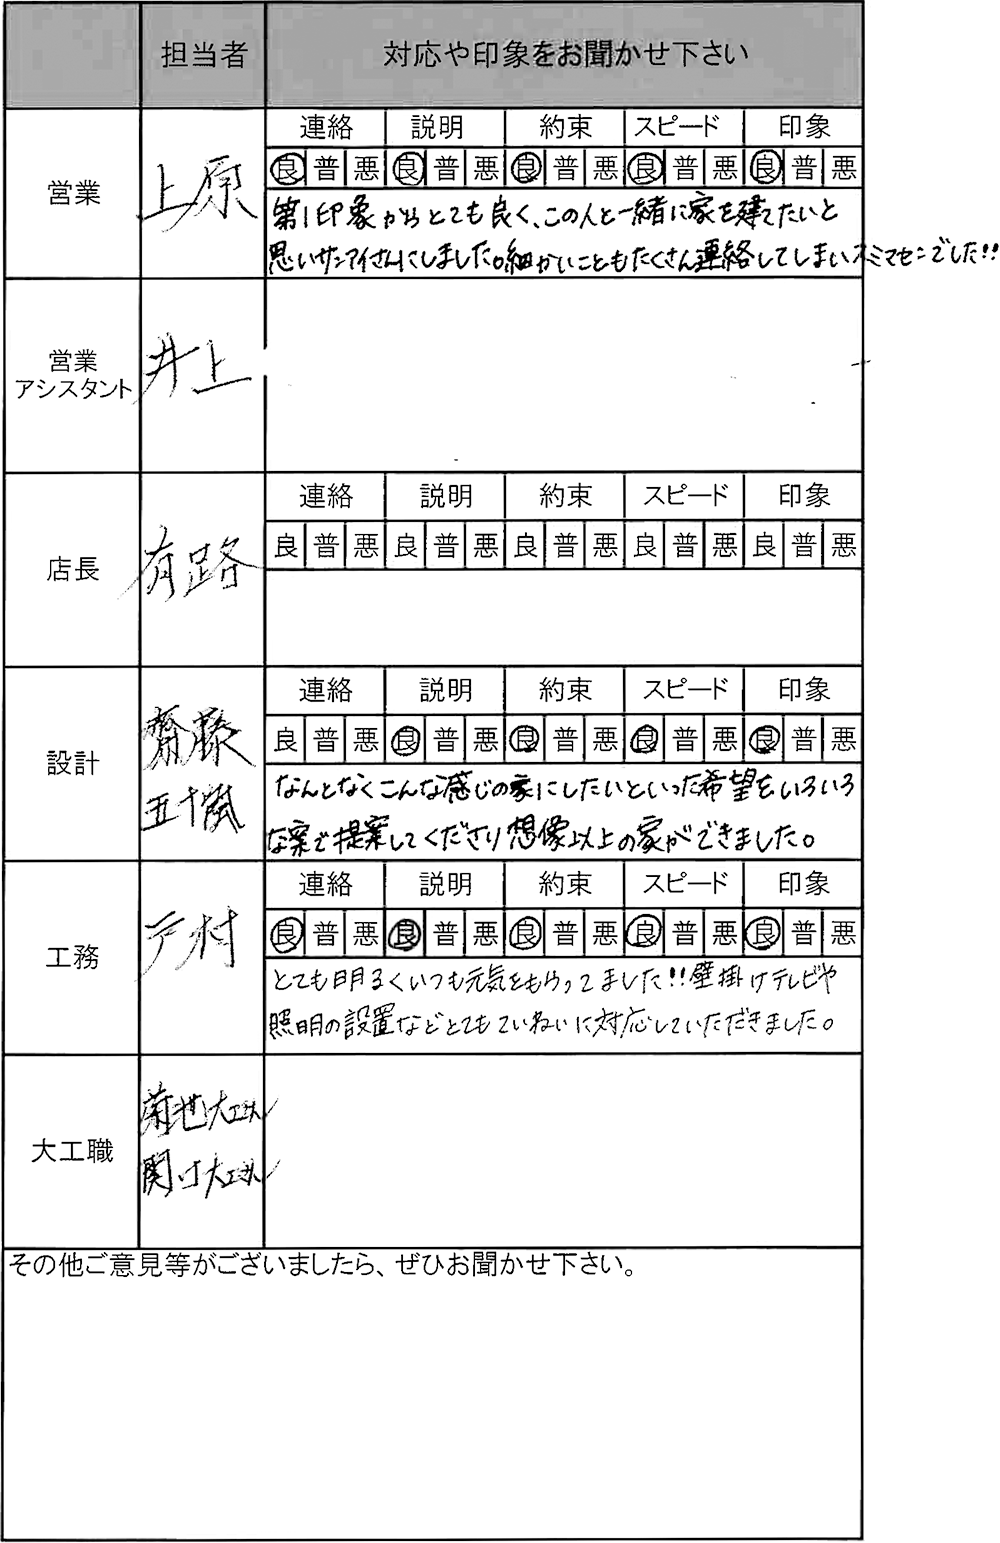 担当者 対応や印象をお聞かせ下さい
連絡 説明 約束 スピード 印象
営業 上原 良 普 悪 良 普 悪 良 普 悪 良 普 悪 良 普 悪
第1印象からとても良く、この人と一緒に家を建てたいと
思いサンマイさんにしました。細かいこともたくさん連絡してしまいスミマセンでした!!
営業
アシスタント 井上
連絡 説明 約束 スピード 印象
良 普 悪 良 普 悪 良 普 悪 良 普 悪 良 普 悪
店長 有路
連絡 説明 約束 スピード 印象
設計 齋藤 良 普 悪 良 普 悪 良 普 悪 良 普 悪 良 普 悪
なんとなくこんな感じの家にしたいといった希望をいろいろ
五十嵐
な案で提案してくださり想像以上の家ができました。
連絡 説明 約束 スピード 印象
工務 戸村 良 普 悪 良 普 悪 良 普 悪 良 普 悪 良 普 悪
とても明るくいつも元気をもらってました!!壁掛けテレビや
照明の設置などとてもていねいに対応していただきました。
菊地大工さん
大工職
大工さん
その他ご意見等がございましたら、ぜひお聞かせ下さい。